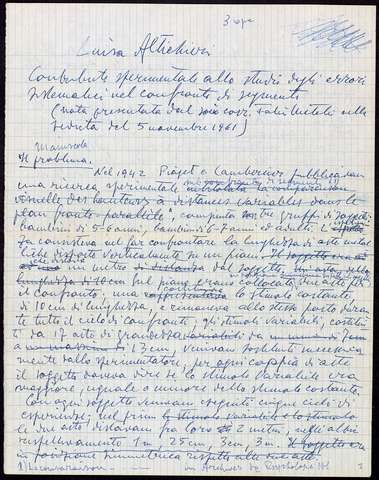 3 copie
Luisa Altichieri
Contributo sperimentale allo studio degli errori
sistematici nel confronto di segmenti
(nota presentata dal socio corr. Fabio Metelli nella
seduta del 5 novembre 1961)
Il problema.
Nel 1942 Piaget e Lambercier pubblicavano
una ricerca sperimentale sul confronto di segmenti 1) intitolata la comparaison
visuelle des hauteurs à distances variables dans le
plan fronto-parallèle, compiuta su tre gruppi di soggetti:
bambini di 5-6 anni, bambini di 6-7 anni ed adulti. La
consisteva nel far confrontare la lunghezza di aste metal
liche disposte verticalmente su un piano. Il soggetto era
un metro di distanza dal soggetto,
lunghezza di 10 cm sul piano erano collocate due aste per
il confronto: una rappresentava lo stimolo costante,
di 10 cm di lunghezza, e rimaneva allo stesso posto duran
te tutto il ciclo di confronti; gli stimoli variabili, costitui
ti da aste di grandezza variabile da un minimo di 7 cm
a un massimo di 13 cm, venivano sostituiti successiva
mente dallo sperimentatore; per ogni coppia di aste
il soggetto doveva dire se lo stimolo variabile era
maggiore, uguale o minore dello stimolo costante.
Con ogni soggetto venivano eseguiti cinque cicli di
esperienze: nel primo lo stimolo variabile e lo stimolo
le due aste distavano fra loro 2 metri, negli altri
rispettivamente 1 m, 25 cm, 3 cm, 3 m. Il soggetto era
in posizione simmetrica rispetto alle due aste.
1) La comparaison in Archives de Psychologie